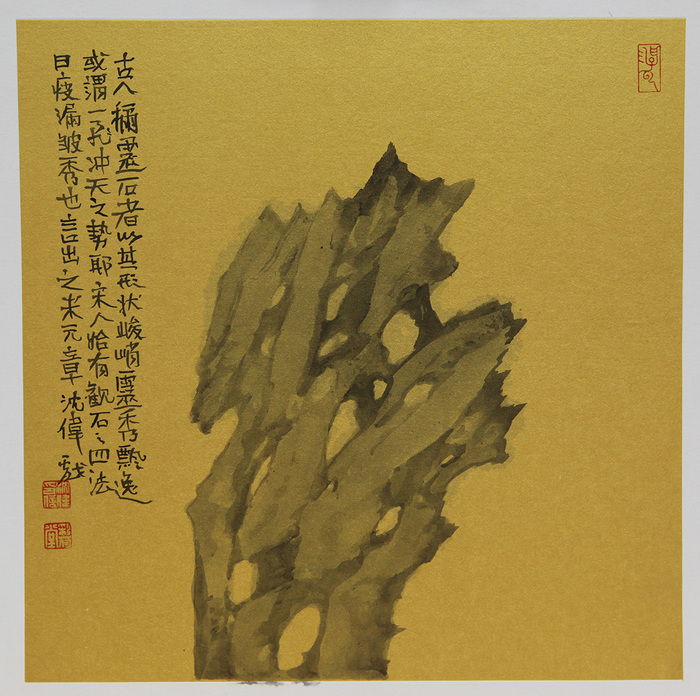 古人稱靈石者以其形状峻峭靈秀飄逸
或謂一孔冲天之勢耶宋人始有觀石之四法
曰瘦漏皺秀也言出之米元章沈偉戲